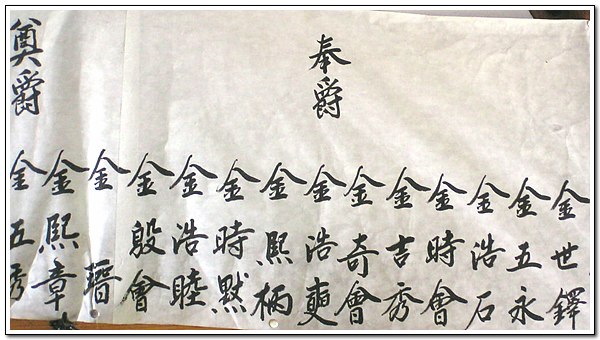 奉爵
金世鐸
金五永
金浩石
金時會
金吉秀
金奇會
金浩奭
金熙柄
金時默
金浩睦
金殷會
奠爵
金瑨
金熙章
金五秀